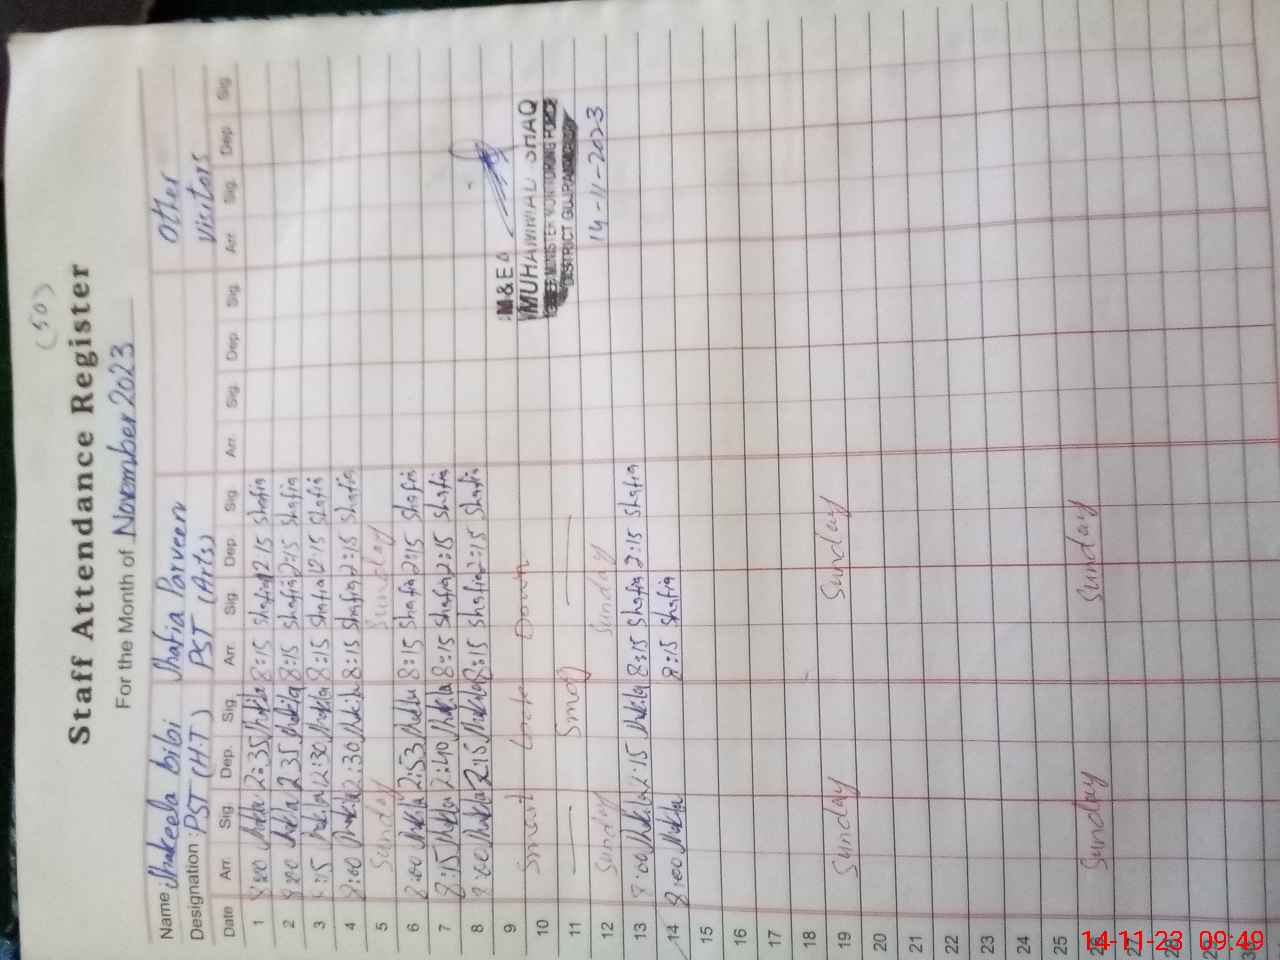 (50)
Staff Attendance Register
For the Month of November 2023
Name Shakeela bibi Shafia Parveen Other
Designation : PST (H.T) PST (Arts) Visitors
Date Arr. Sig. Dep. Sig. Arr. Sig. Dep. Sig. Arr. Sig. Dep. Sig. Arr. Sig. Dep. Sig.
1 8:00 2:35 8:15 Shafia 2:15 Shafia
2 8:00 2:35 8:15 Shafia 2:15 Shafia
3 8:15 12:30 8:15 Shafia 12:15 Shafia
4 8:00 2:30 8:15 Shafia 2:15 Shafia
5 Sunday Sunday
6 8:00 2:53 8:15 Shafia 2:15 Shafia
7 8:15 2:40 8:15 Shafia 2:15 Shafia
8 8:00 2:15 8:15 Shafia 2:15 Shafia
9 M&EA
10 Smart Lock Down MUHAMMAD
CHIEF MINISTER MONITORING FORCE
11 Smog DISTRICT GUJRANWALA
12 Sunday Sunday 14-11-2023
13 8:00 2:15 8:15 Shafia 2:15 Shafia
14 8:00 8:15 Shafia
15
16
17
18
19 Sunday Sunday
20
21
22
23
24
25
26 Sunday Sunday
27
28
29
30
14-11-23 09:49